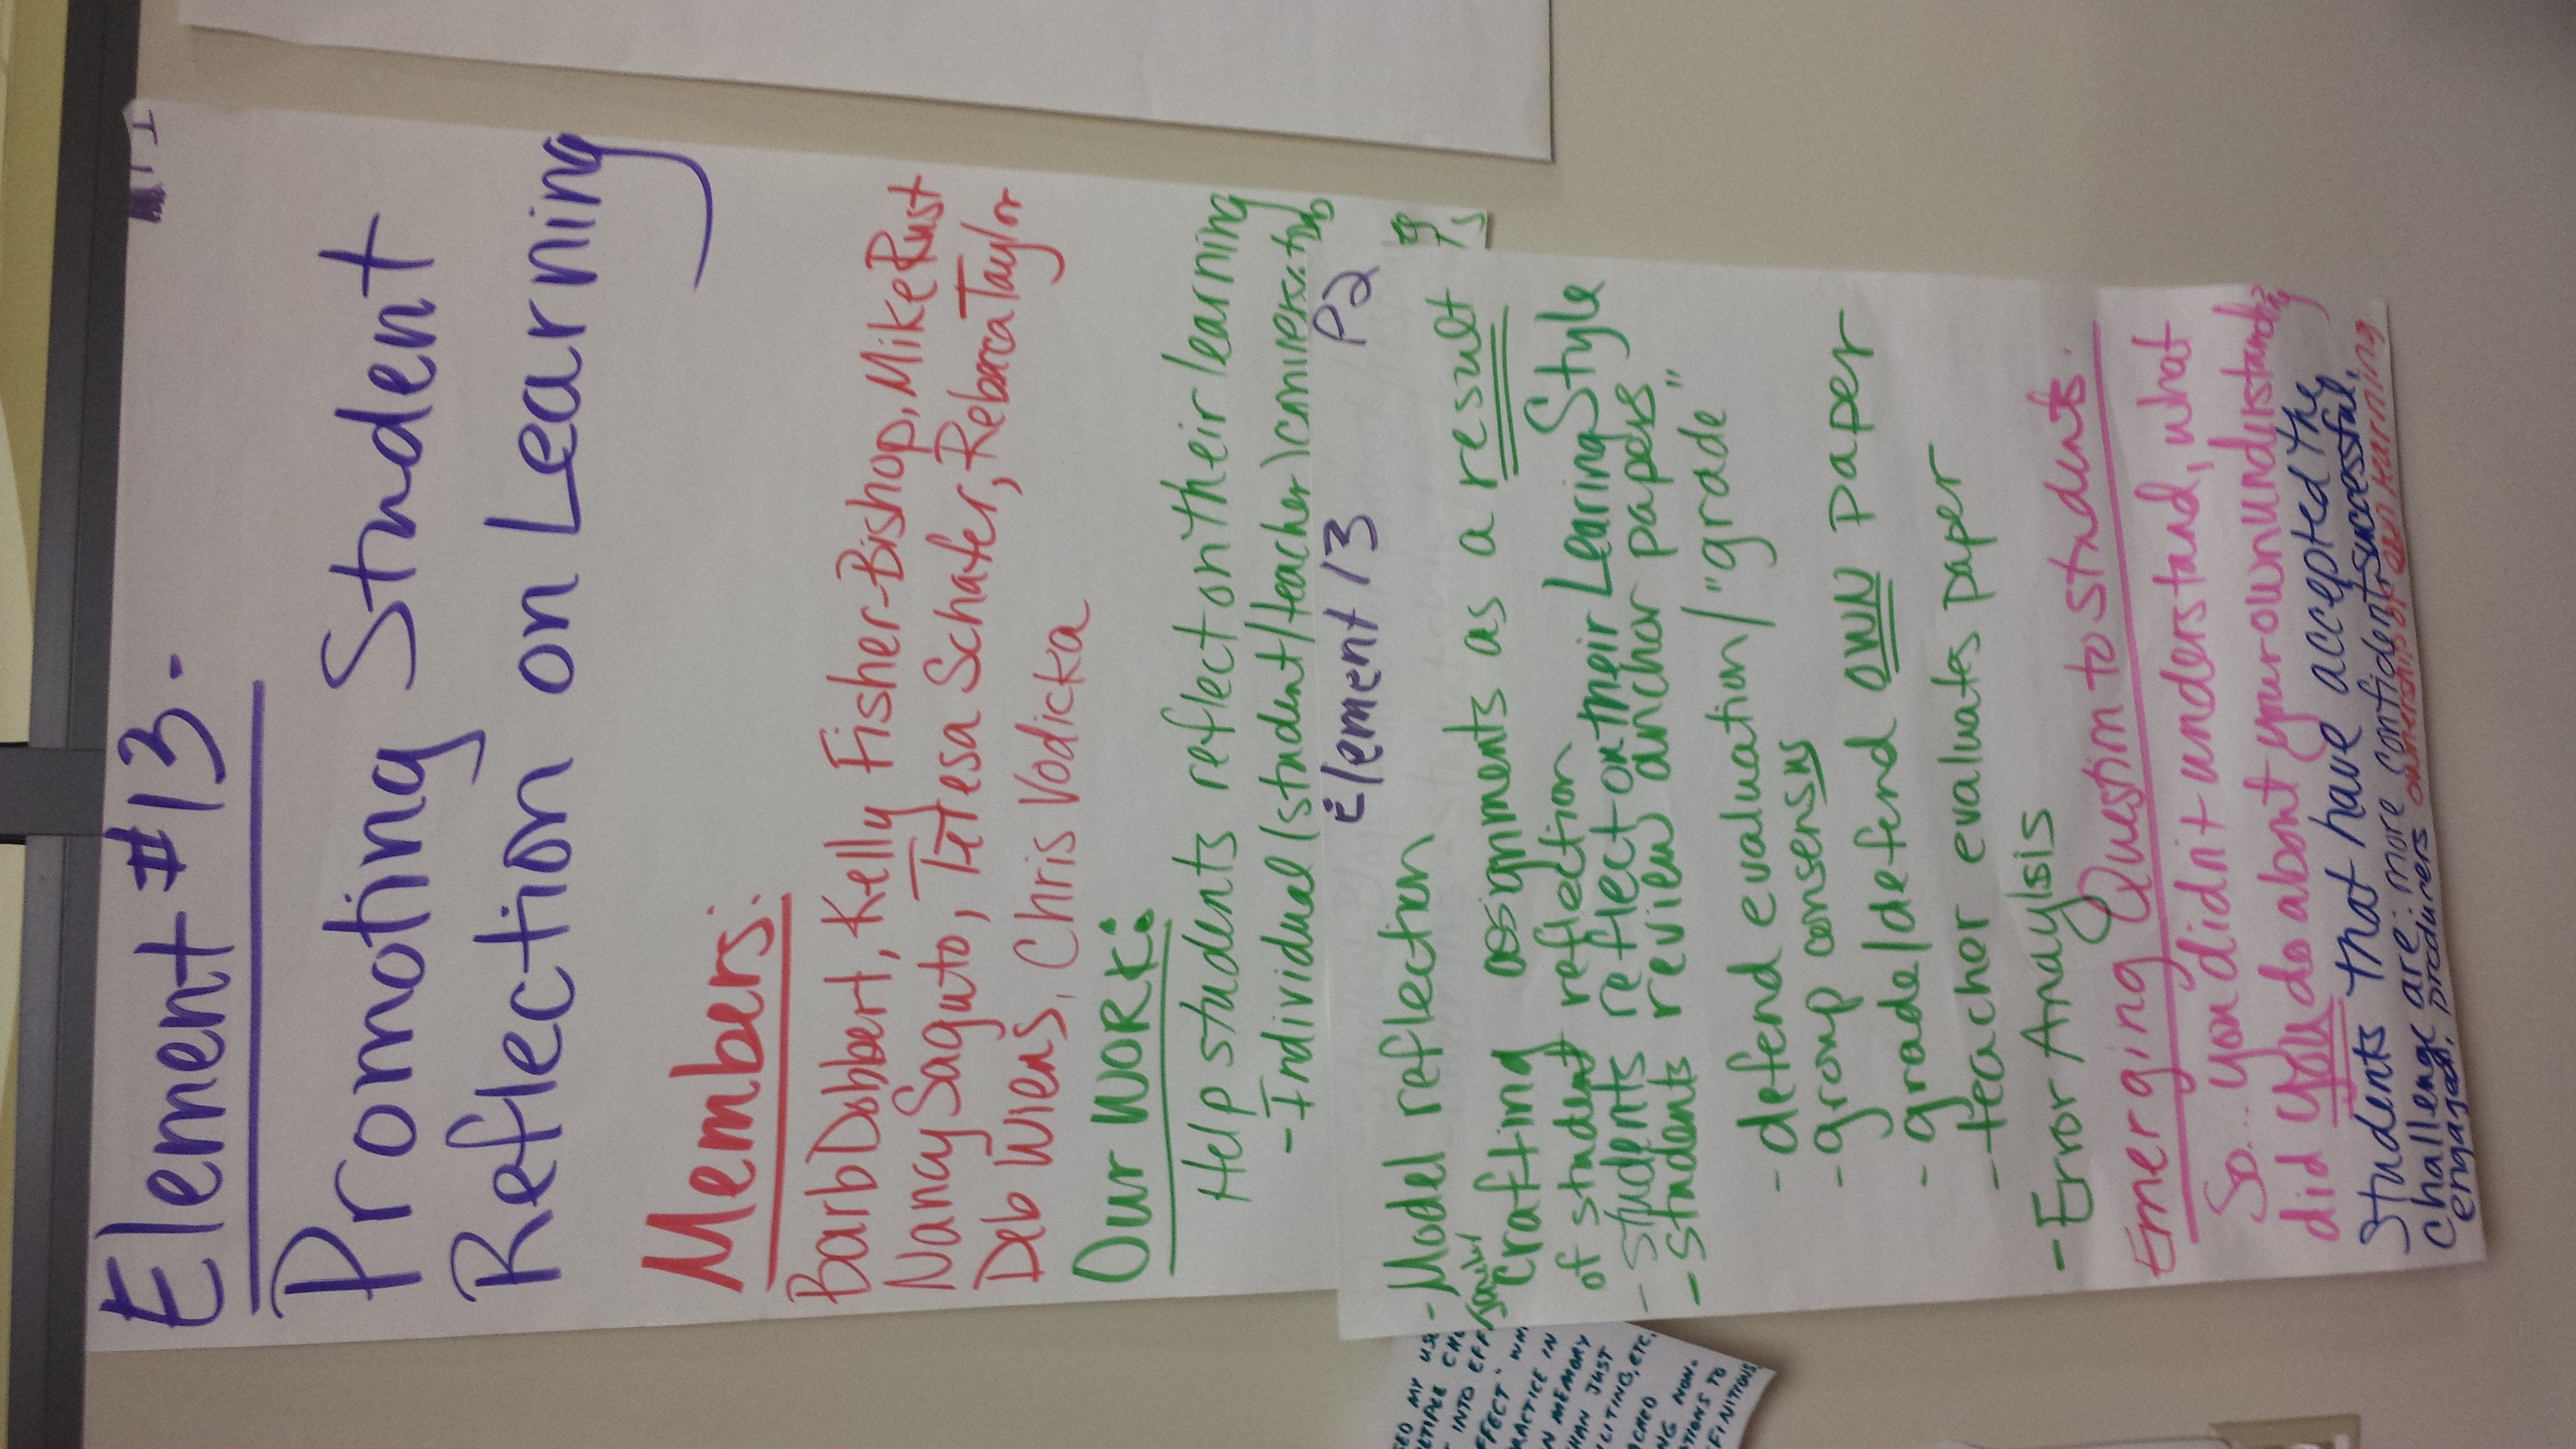 Element #13.
Promoting Student
Reflection on Learning
Members:
Barb Dobbert, Kelly Fisher-Bishop, Mike Rust
Nancy Saguto, Teresa Schafer, Rebecca Taylor
Deb Wiens, Chris Vodicka
Our WORK:
Help students reflect on their learning
- Individual (student/teacher)
Element 13 P2
- Model reflection
crafting assignments as a result
of student reflection
- students reflect on their Learing Style
- students review anchor papers
- defend evaluation/"grade"
- group consensus
- grade/defend OWN paper
- teacher evaluates paper
- Error Anaylsis
Emerging Question to students:
So... you didn't understand, what
did you do about your own understanding?
Students that have accepted the
challenge are: more confident, successful,
engaged, producers ownership of own learning
ED MY
INTO
PRACTICE IN
MEMORY
HAN JUST
ETC.
NON.
TIONS TO
FINITIONS